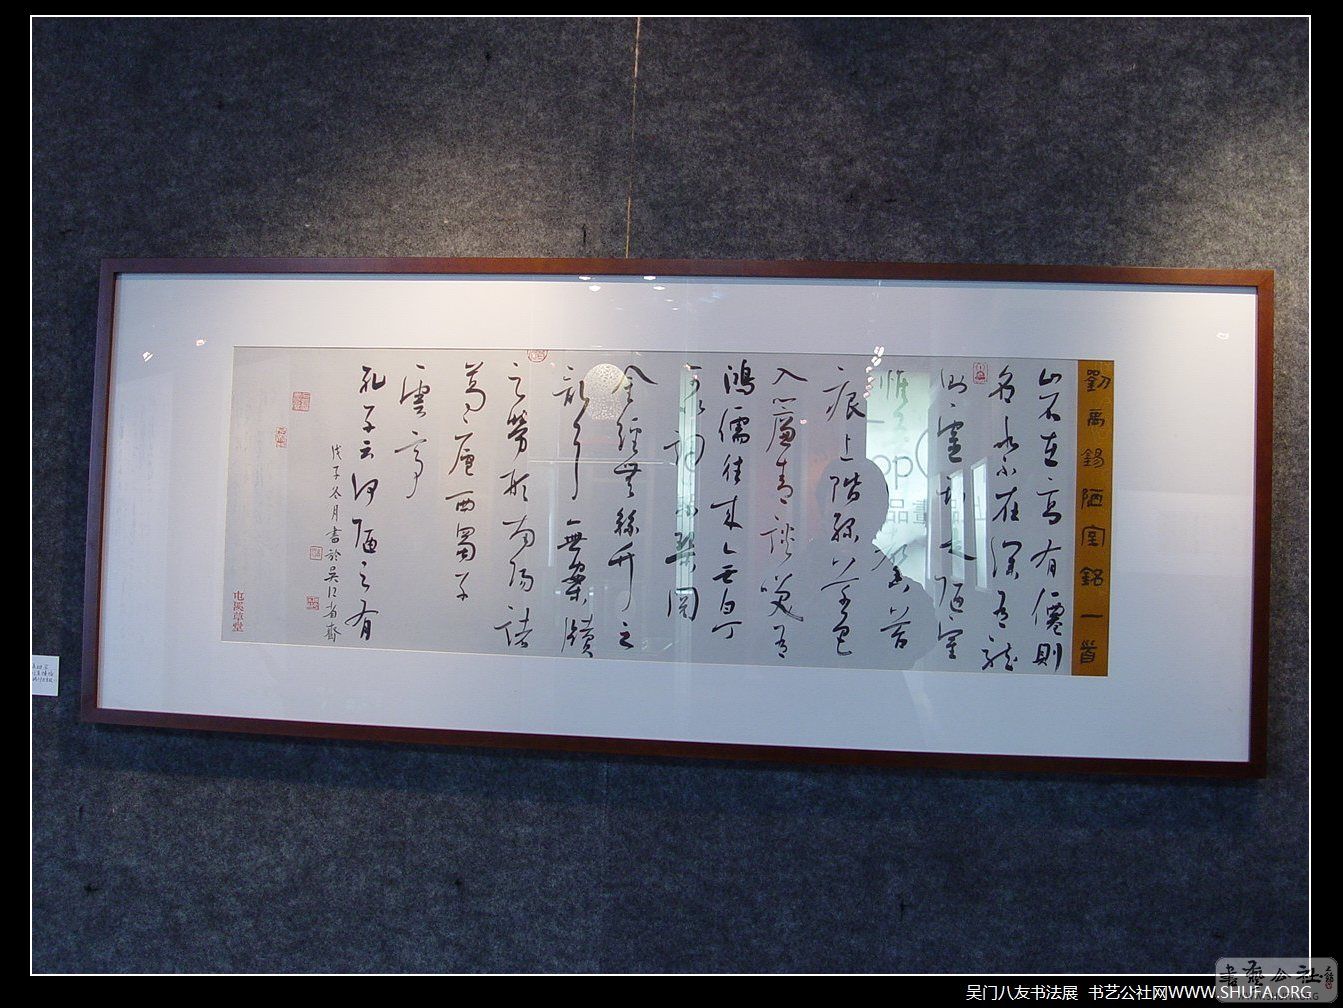 劉禹錫陋室銘一首
山不在高有僊則
名水不在深有龍
則靈斯是陋室
惟吾德馨苔
痕上階綠草色
入簾青談笑有
鴻儒往來無白丁
可以調素琴閱
金經無絲竹之
亂耳無案牘
之勞形南陽諸
葛廬西蜀子
雲亭
孔子云何陋之有
戊子冬月書於吳江齋
屯溪草堂
書藝公社
吴门八友书法展 书艺公社网WWW.SHUFA.ORG